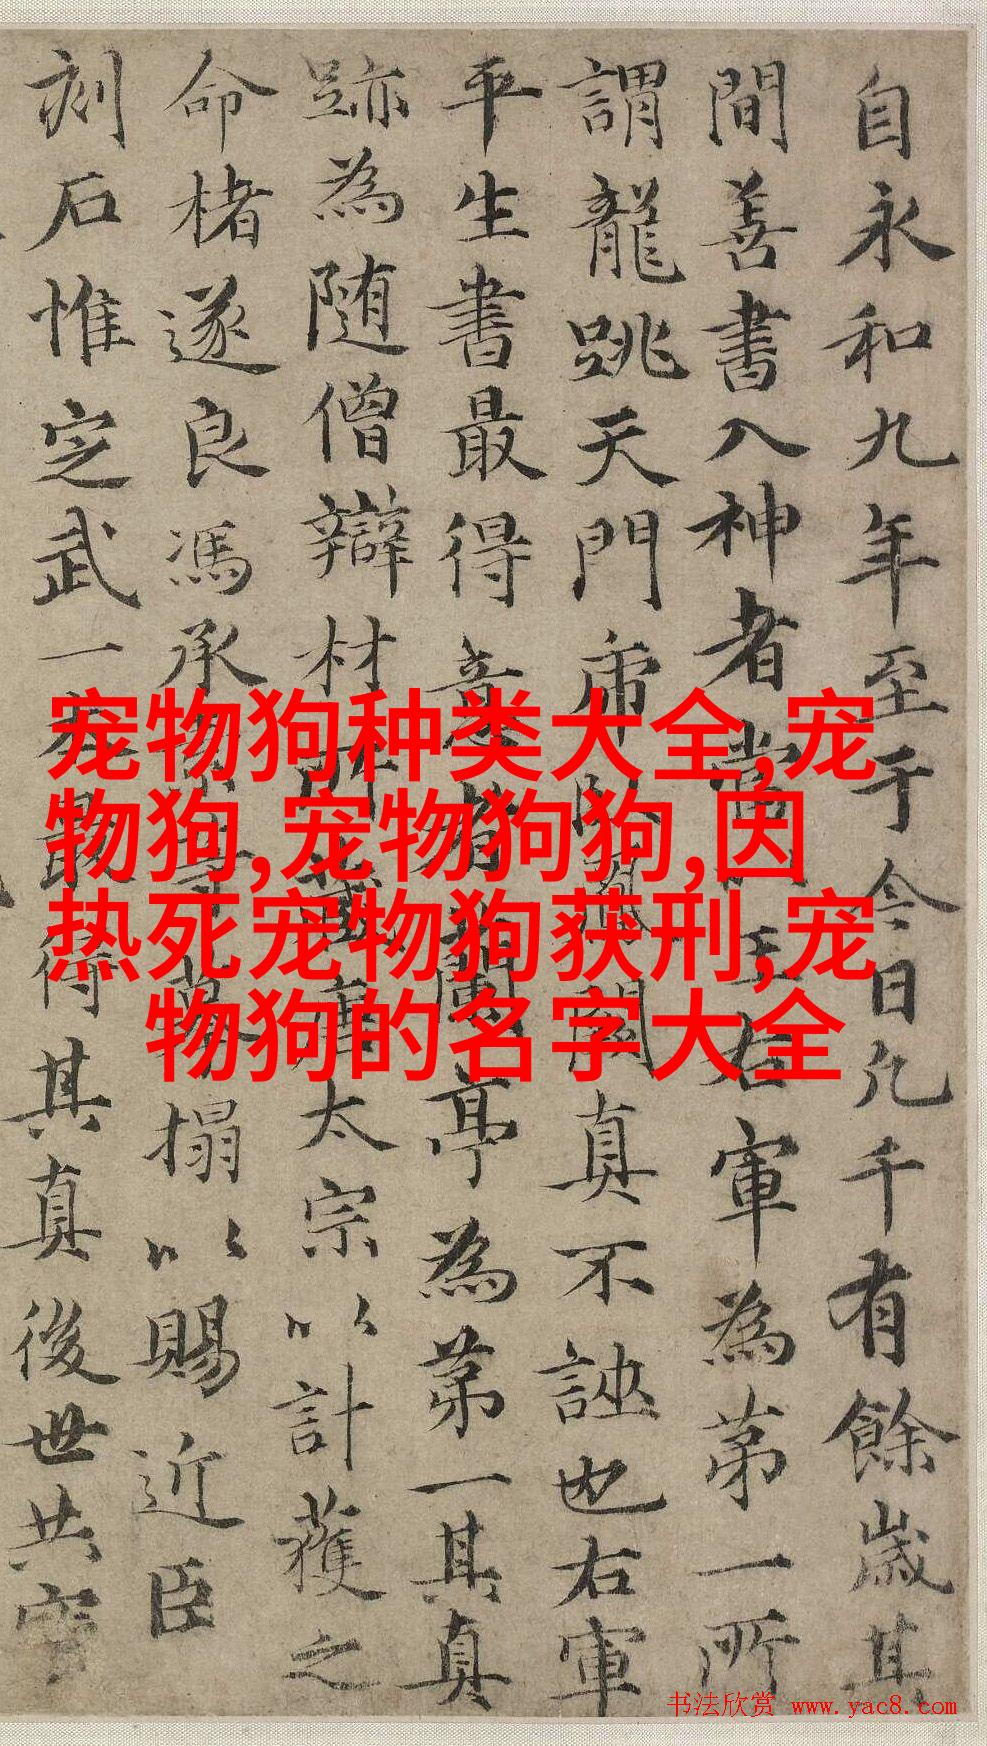 自永和九年至于今日凡千有餘歲其
間善書入神者當以王右軍為第一所
謂龍跳天門虎卧鳳閣真不誣也右軍
平生書最得意者蘭亭為第一其真
跡為随僧辯材所藏唐太宗以計獲之
命楮遂良馮承素等摹搨以賜近臣
刻石惟定武一本最得其真後世共寳
宠物狗种类大全,宠
物狗,宠物狗狗,因
热死宠物狗获刑,宠
物狗的名字大全
书法欣赏 www.yac8.com